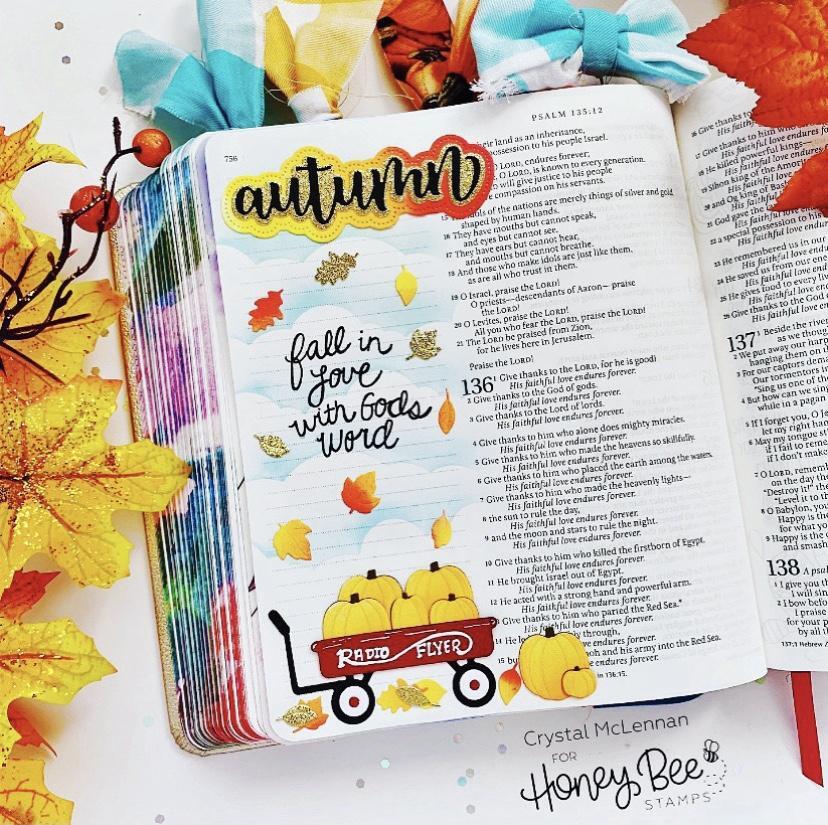 PSALM 135:12
756
autumn
fall in
love
with Gods
Word
RADIO FLYER
their land as an inheritance,
possession to his people Israel.
LORD, endures forever;
O LORD, is known to every generation.
will give justice to his people
compassion on his servants.
15 idols of the nations are merely things of silver and gold,
shaped by human hands.
16 They have mouths but cannot speak,
and eyes but cannot see.
17 They have ears but cannot hear,
and mouths but cannot breathe.
18 And those who make idols are just like them,
as are all who trust in them.
19 O Israel, praise the LORD!
O priests—descendants of Aaron— praise
the LORD!
20 O Levites, praise the LORD!
All you who fear the LORD, praise the LORD!
21 The LORD be praised from Zion,
for he lives here in Jerusalem.
Praise the LORD!
136 1 Give thanks to the LORD, for he is good!
His faithful love endures forever.
2 Give thanks to the God of gods.
His faithful love endures forever.
3 Give thanks to the Lord of lords.
His faithful love endures forever.
4 Give thanks to him who alone does mighty miracles.
His faithful love endures forever.
5 Give thanks to him who made the heavens so skillfully.
His faithful love endures forever.
6 Give thanks to him who placed the earth among the waters.
His faithful love endures forever.
7 Give thanks to him who made the heavenly lights—
His faithful love endures forever.
8 the sun to rule the day,
His faithful love endures forever.
9 and the moon and stars to rule the night.
His faithful love endures forever.
10 Give thanks to him who killed the firstborn of Egypt.
His faithful love endures forever.
11 He brought Israel out of Egypt.
His faithful love endures forever.
12 He acted with a strong hand and powerful arm.
His faithful love endures forever.
Give thanks to him who parted the Red Sea.*
His faithful love endures forever.
14 He through,
endures forever.
15 and his army into the Red Sea.
endures forever.
in 136:15.
16 Give thanks to
His faithful
17 Give thanks to him
His faithful love
18 He killed powerful kings—
His faithful love
19 Sihon king of the Amorites
His faithful
20 and Og king of
His faithful
21 God gave the
His faithful
22 a special possession to his
His faithful
23 He remembered us in our
His faithful love
24 He saved us from our
His faithful love
25 He gives food to every
His faithful love
26 Give thanks to the God
His faithful
137 1 Beside the rivers
as we
2 We put away our harps
hanging them on
3 For our captors
Our tormentors
"Sing us one of
4 But how can we
while in a pagan
5 If I forget you, O
let my right
6 May my tongue
if I fail to
if I don't
7 O LORD, remember
on the day
"Destroy it!"
"Level it to
8 O Babylon, you
Happy is the
for what
9 Happy is the
and smash
138 A
1 I give you
I will
2 I bow before
I praise
for your
by all
137:1 Hebrew
Crystal McLennan
FOR
Honey Bee
STAMPS